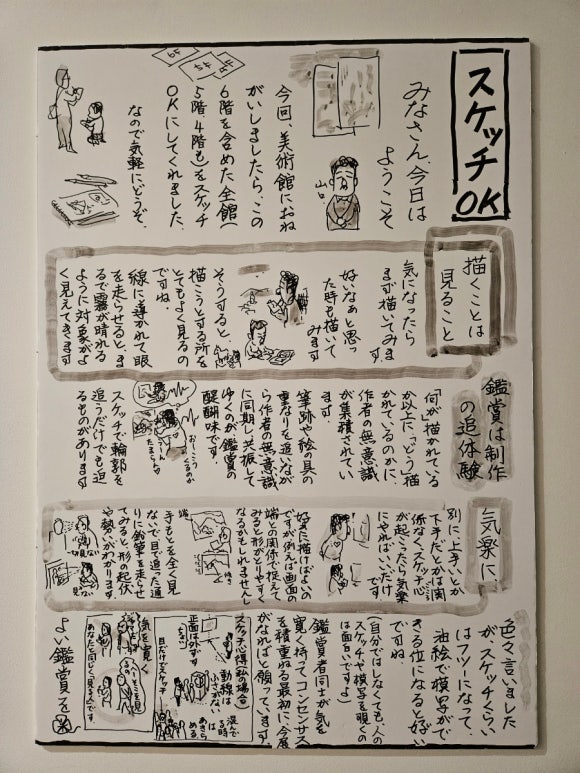 スケッチOK
みなさん、今日は
ようこそ
山口
今回、美術館におね
がいしましたら、この
6階を含めた全館(
5階、4階も)をスケッチ
OKにしてくれました。
なので気軽にどうぞ。
6F
5F
4F
描くことは
見ること
気になったら
まず描いてみます。
好いなぁと思っ
た時も描いて
みます
そうすると
描こうとする所を
とてもよく見るの
ですね。
線に導かれて眼
を走らせると、ま
るで霧が晴れる
ように対象がよ
く見えてきます
鑑賞は制作
の追体験
「何が」描かれている
か以上に、「どう」描
かれているのかに、
作者の無意識
が集積されてい
ます。
筆跡や絵の具の
重なりを追いなが
ら作者の無意識
に同期・共振して
ゆくのが鑑賞の
醍醐味です。
スケッチで輪郭を
追うだけでも迫
るものがあります
気楽に、
別に上手いとか
下手だとかは関
係なくスケッチ心
が起こったら気楽
にやればいいだけ
です
好きに描けばよいの
ですが例えば画面の
端との関係で捉えて
みると形がとりやすく
なるかもしれませんし
端
手もとを全く見
ないで目で追った通
りに鉛筆を走らせ
てみると、形の起伏
や勢いがわかります。
見ない
色々言いました
が、スケッチくらい
はフツーになって、
油絵で模写がで
きる位になると好い
ですね
(自分ではしなくても、人の
スケッチや模写を覗くの
は面白いですよ)
鑑賞者同士が気を
寛く持ってコンセンサス
を積重ねる最初に、今展
がなればと願っています。
スケッチ心得(私の場合)
正面は外す
動線は
ふさがない
混んで
る時
は
あきら
める
目だけでスケッチ
気を寛く
あなたも同じく見る人です。
よい鑑賞を